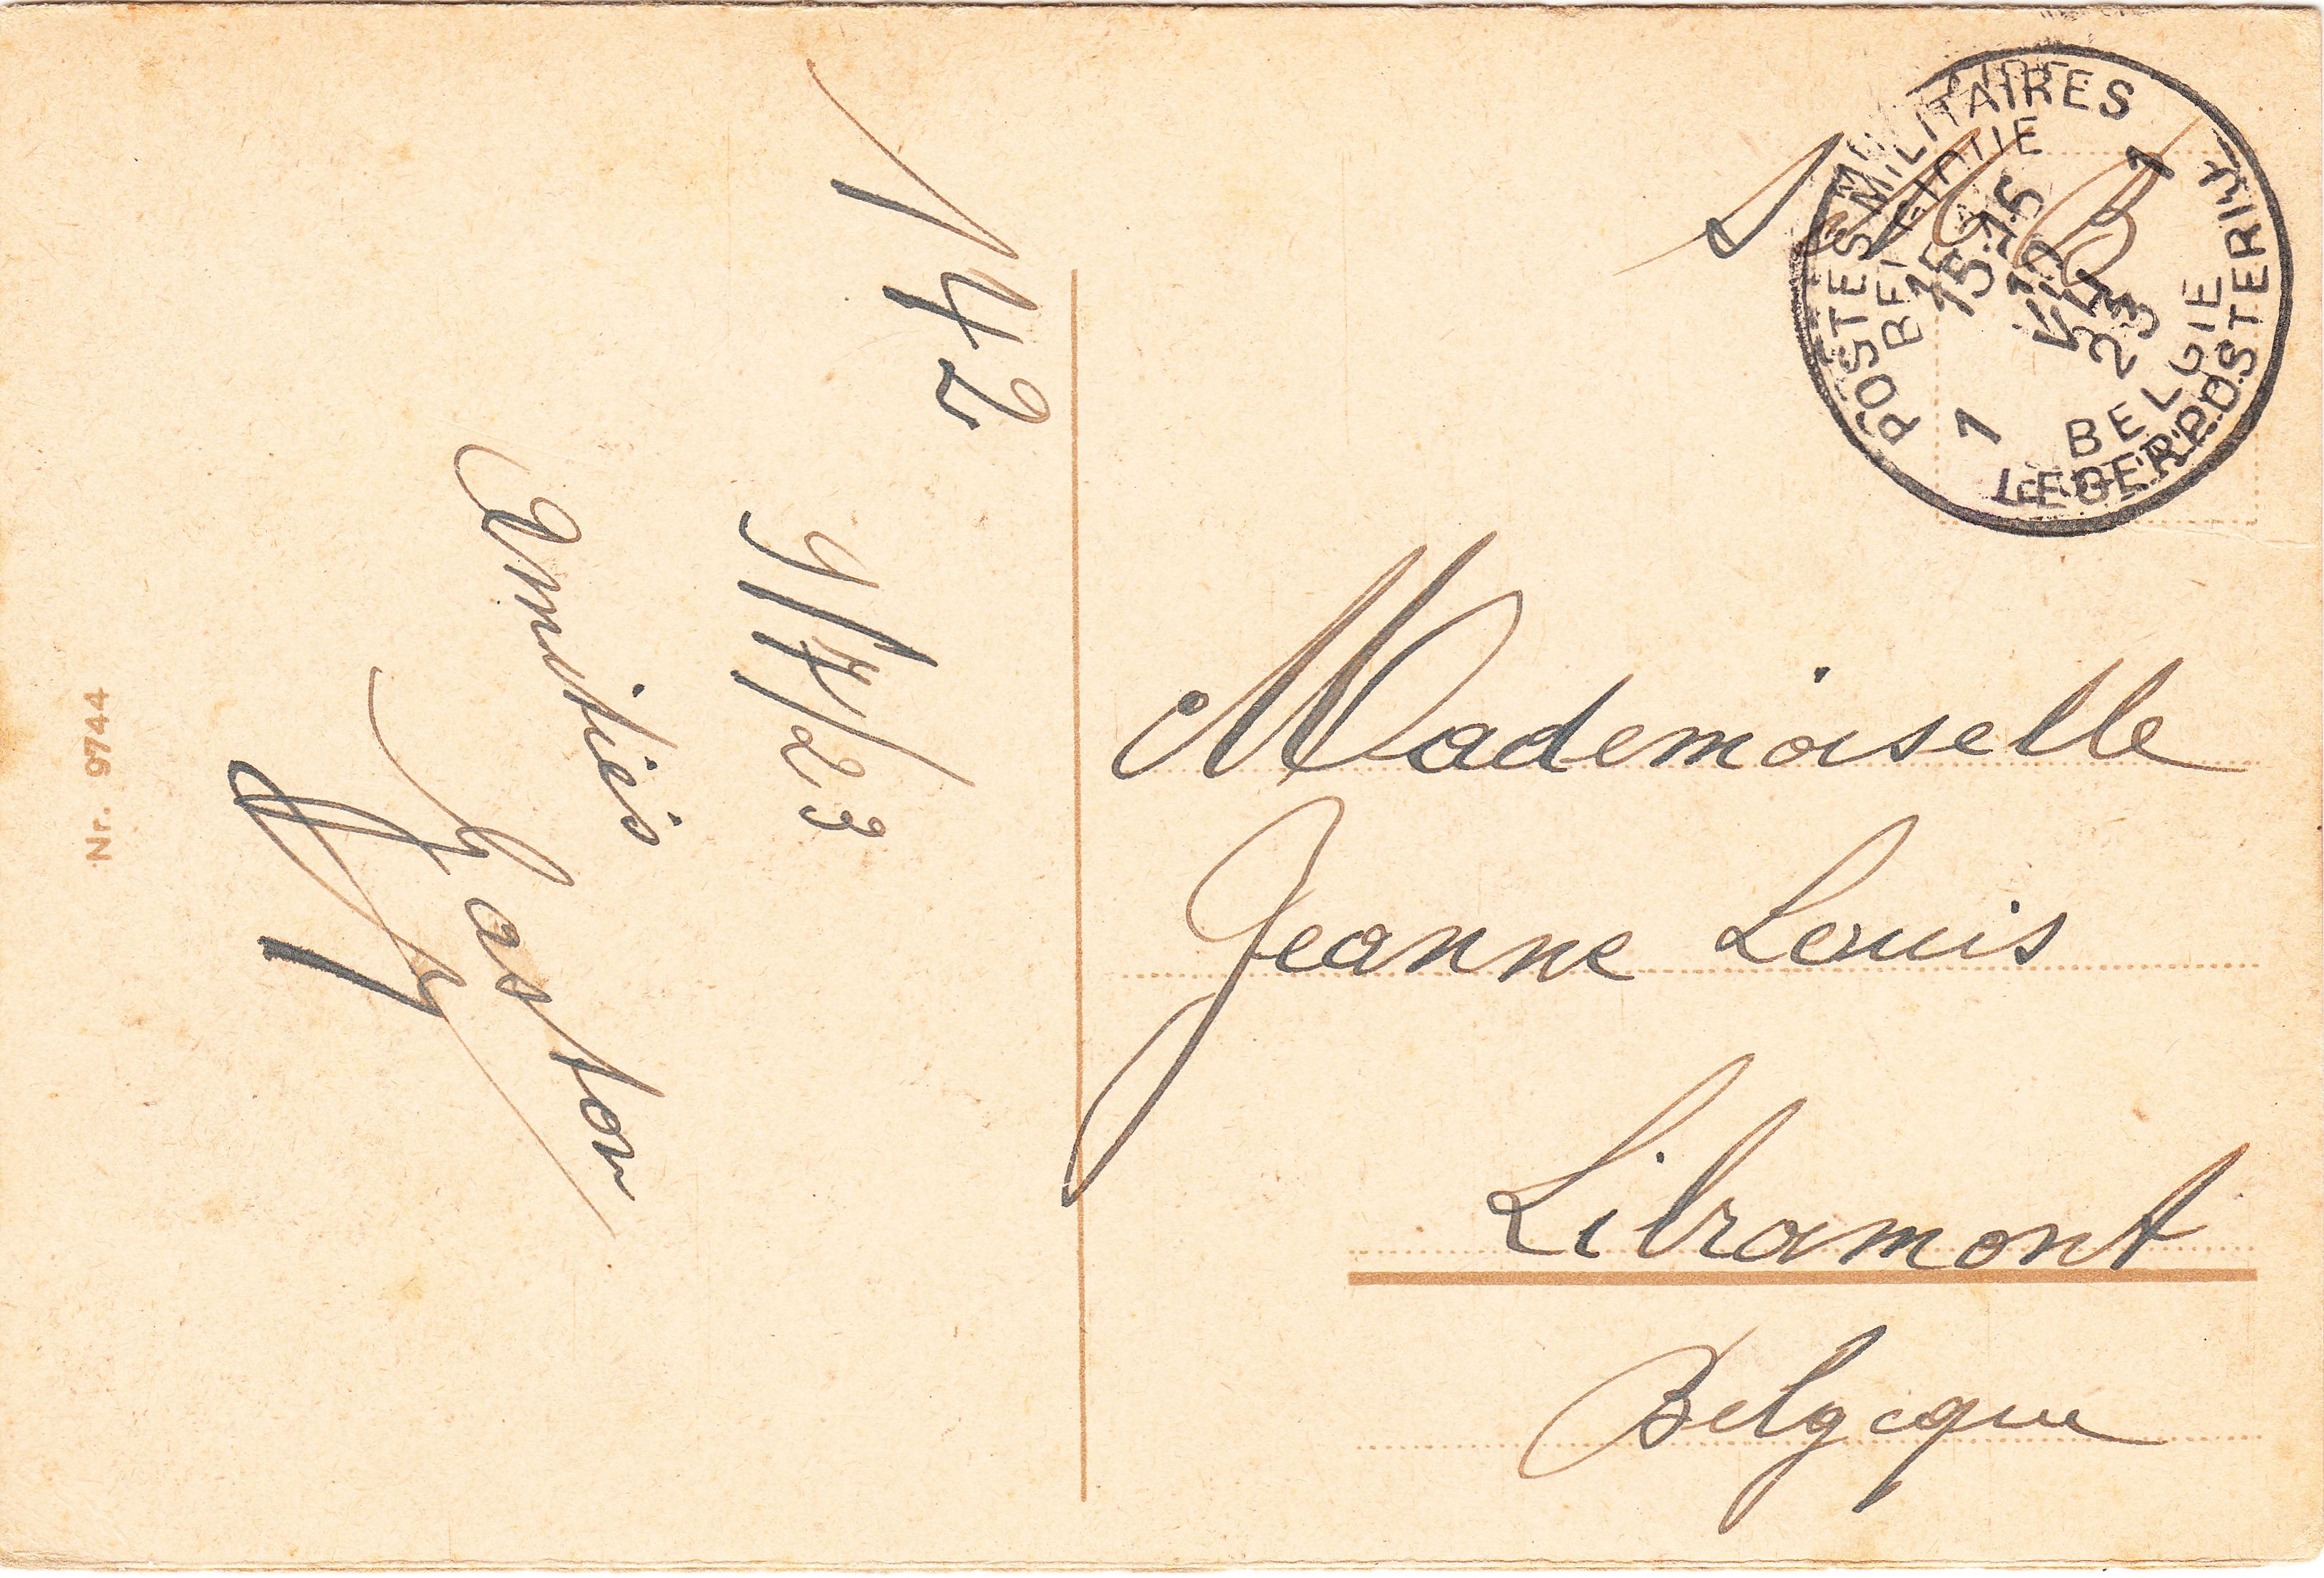 142
9/7/23
Amitiés
Gaston
Nr. 9744
S M
POSTES MILITAIRES
BELGIQUE
15-16
VII
23
1
1
BELGIE
LEGERPOSTERIJ
Mademoiselle
Jeanne Louis
Libramont
Belgique